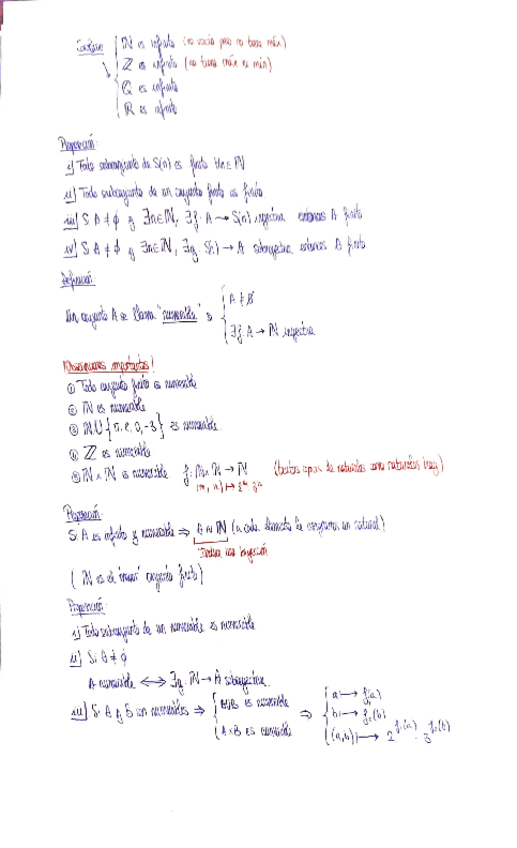 ℕ es infinito (no vacío pero no tiene máx)
ℤ es infinito (no tiene máx ni mín)
ℚ es infinito
ℝ es infinito
Proposición:
i) Todo subconjunto de S(n) es finito ∀n∈ℕ
ii) Todo subconjunto de un conjunto finito es finito
iii) Si A≠∅ y ∃n∈ℕ, ∃f: A → S(n) inyectiva entonces A finito
iv) Si A≠∅ y ∃n∈ℕ, ∃g: S(n) → A sobreyectiva entonces A finito
Definición:
Un conjunto A se llama "numerable" si { A≠∅
∃f: A → ℕ inyectiva
Observaciones importantes!
① Todo conjunto finito es numerable
② ℕ es numerable
③ ℕ∪{π, e, 0, -3} es numerable
④ ℤ es numerable
⑤ ℕ×ℕ es numerable f: ℕ×ℕ → ℕ (tantos pares de naturales como naturales hay)
(m, n) ↦ 2ᵐ 3ⁿ
Proposición:
Si A es infinito y numerable ⇒ A ≈ ℕ (a cada elemento le corresponde un natural)
una biyección
(ℕ es el conjunto)
Proposición:
i) Todo subconjunto de un numerable es numerable
ii) Si A≠∅
A numerable ⟺ ∃g: ℕ → A sobreyectiva
iii) Si A y B son numerables ⇒ { A∪B es numerable
A×B es numerable ⇒ { a ⟼ f₁(a)
b ⟼ f₂(b)
(a,b) ⟼ 2^f₁(a) · 3^f₂(b)